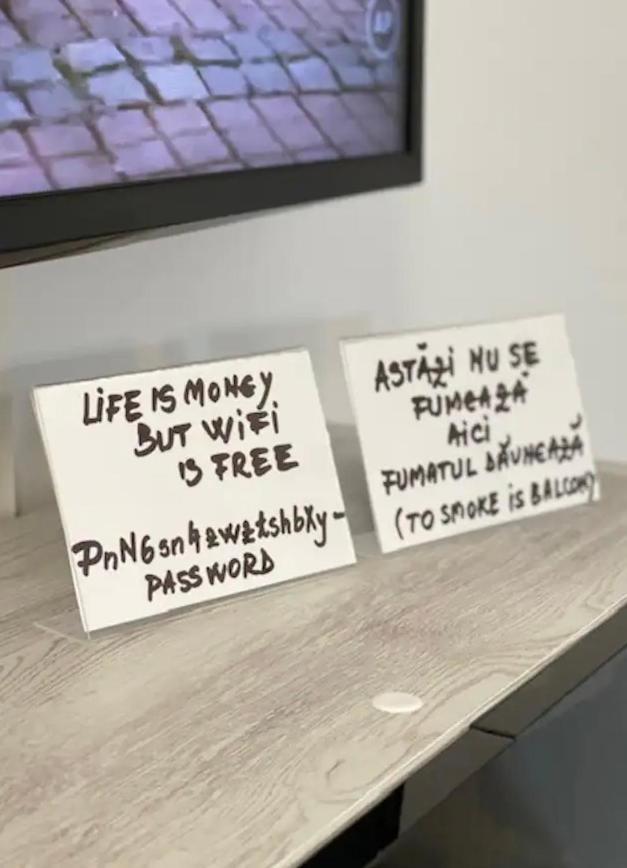 LiFE IS MONEY
BUT WiFi
IS FREE
PnN6sn4zwztshbXy-
PASSWORD
ASTĂZi NU SE
FUMEAZĂ
AiCi
FUMATUL DĂUNEAZĂ
(TO SMOKE iS BALCONY)